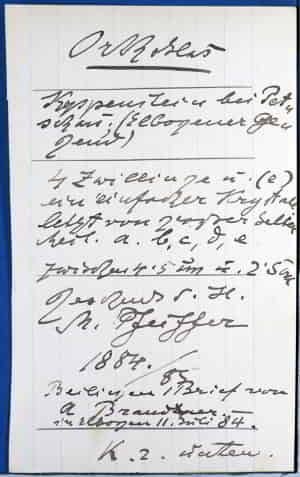 Orthoklas
Koppenstein bei Petsch
schau. (Elbogener Ge
gend)
4 Zwillinge u. (e)
ein einfacher Krystall
letzt von großer Selten
heit. a. b, c, d, e
zwischen 1·5 cm u. 2·5 cm
Geschenk d. H.
M. Pfeiffer
1884.
Beiliegen Brief von
A. Brandtner
in Elbogen 11. Juli 84.
K. 2. unten.